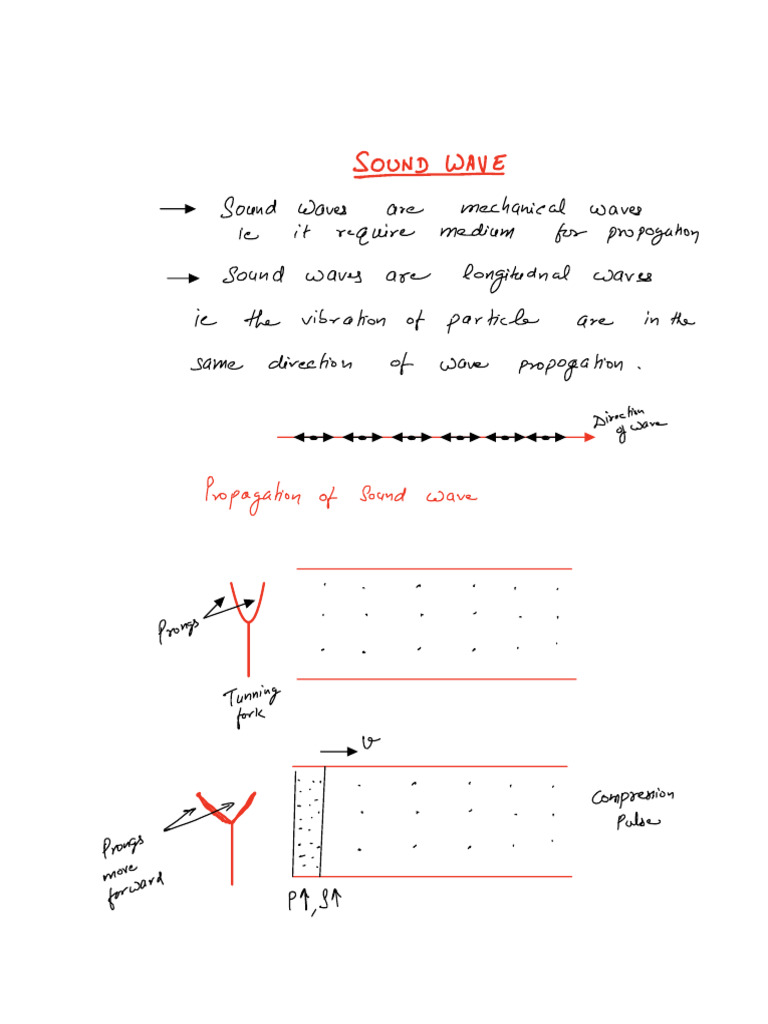 SOUND WAVE
→ Sound waves are mechanical waves
ie it require medium for propogation
→ Sound waves are longitudnal waves
ie the vibration of particle are in the
same direction of wave propogation.
Direction
of wave
Propagation of Sound wave
Prongs
Tunning
fork
v
Compression
Pulse
Prongs
move
forward
P↑, ρ↑